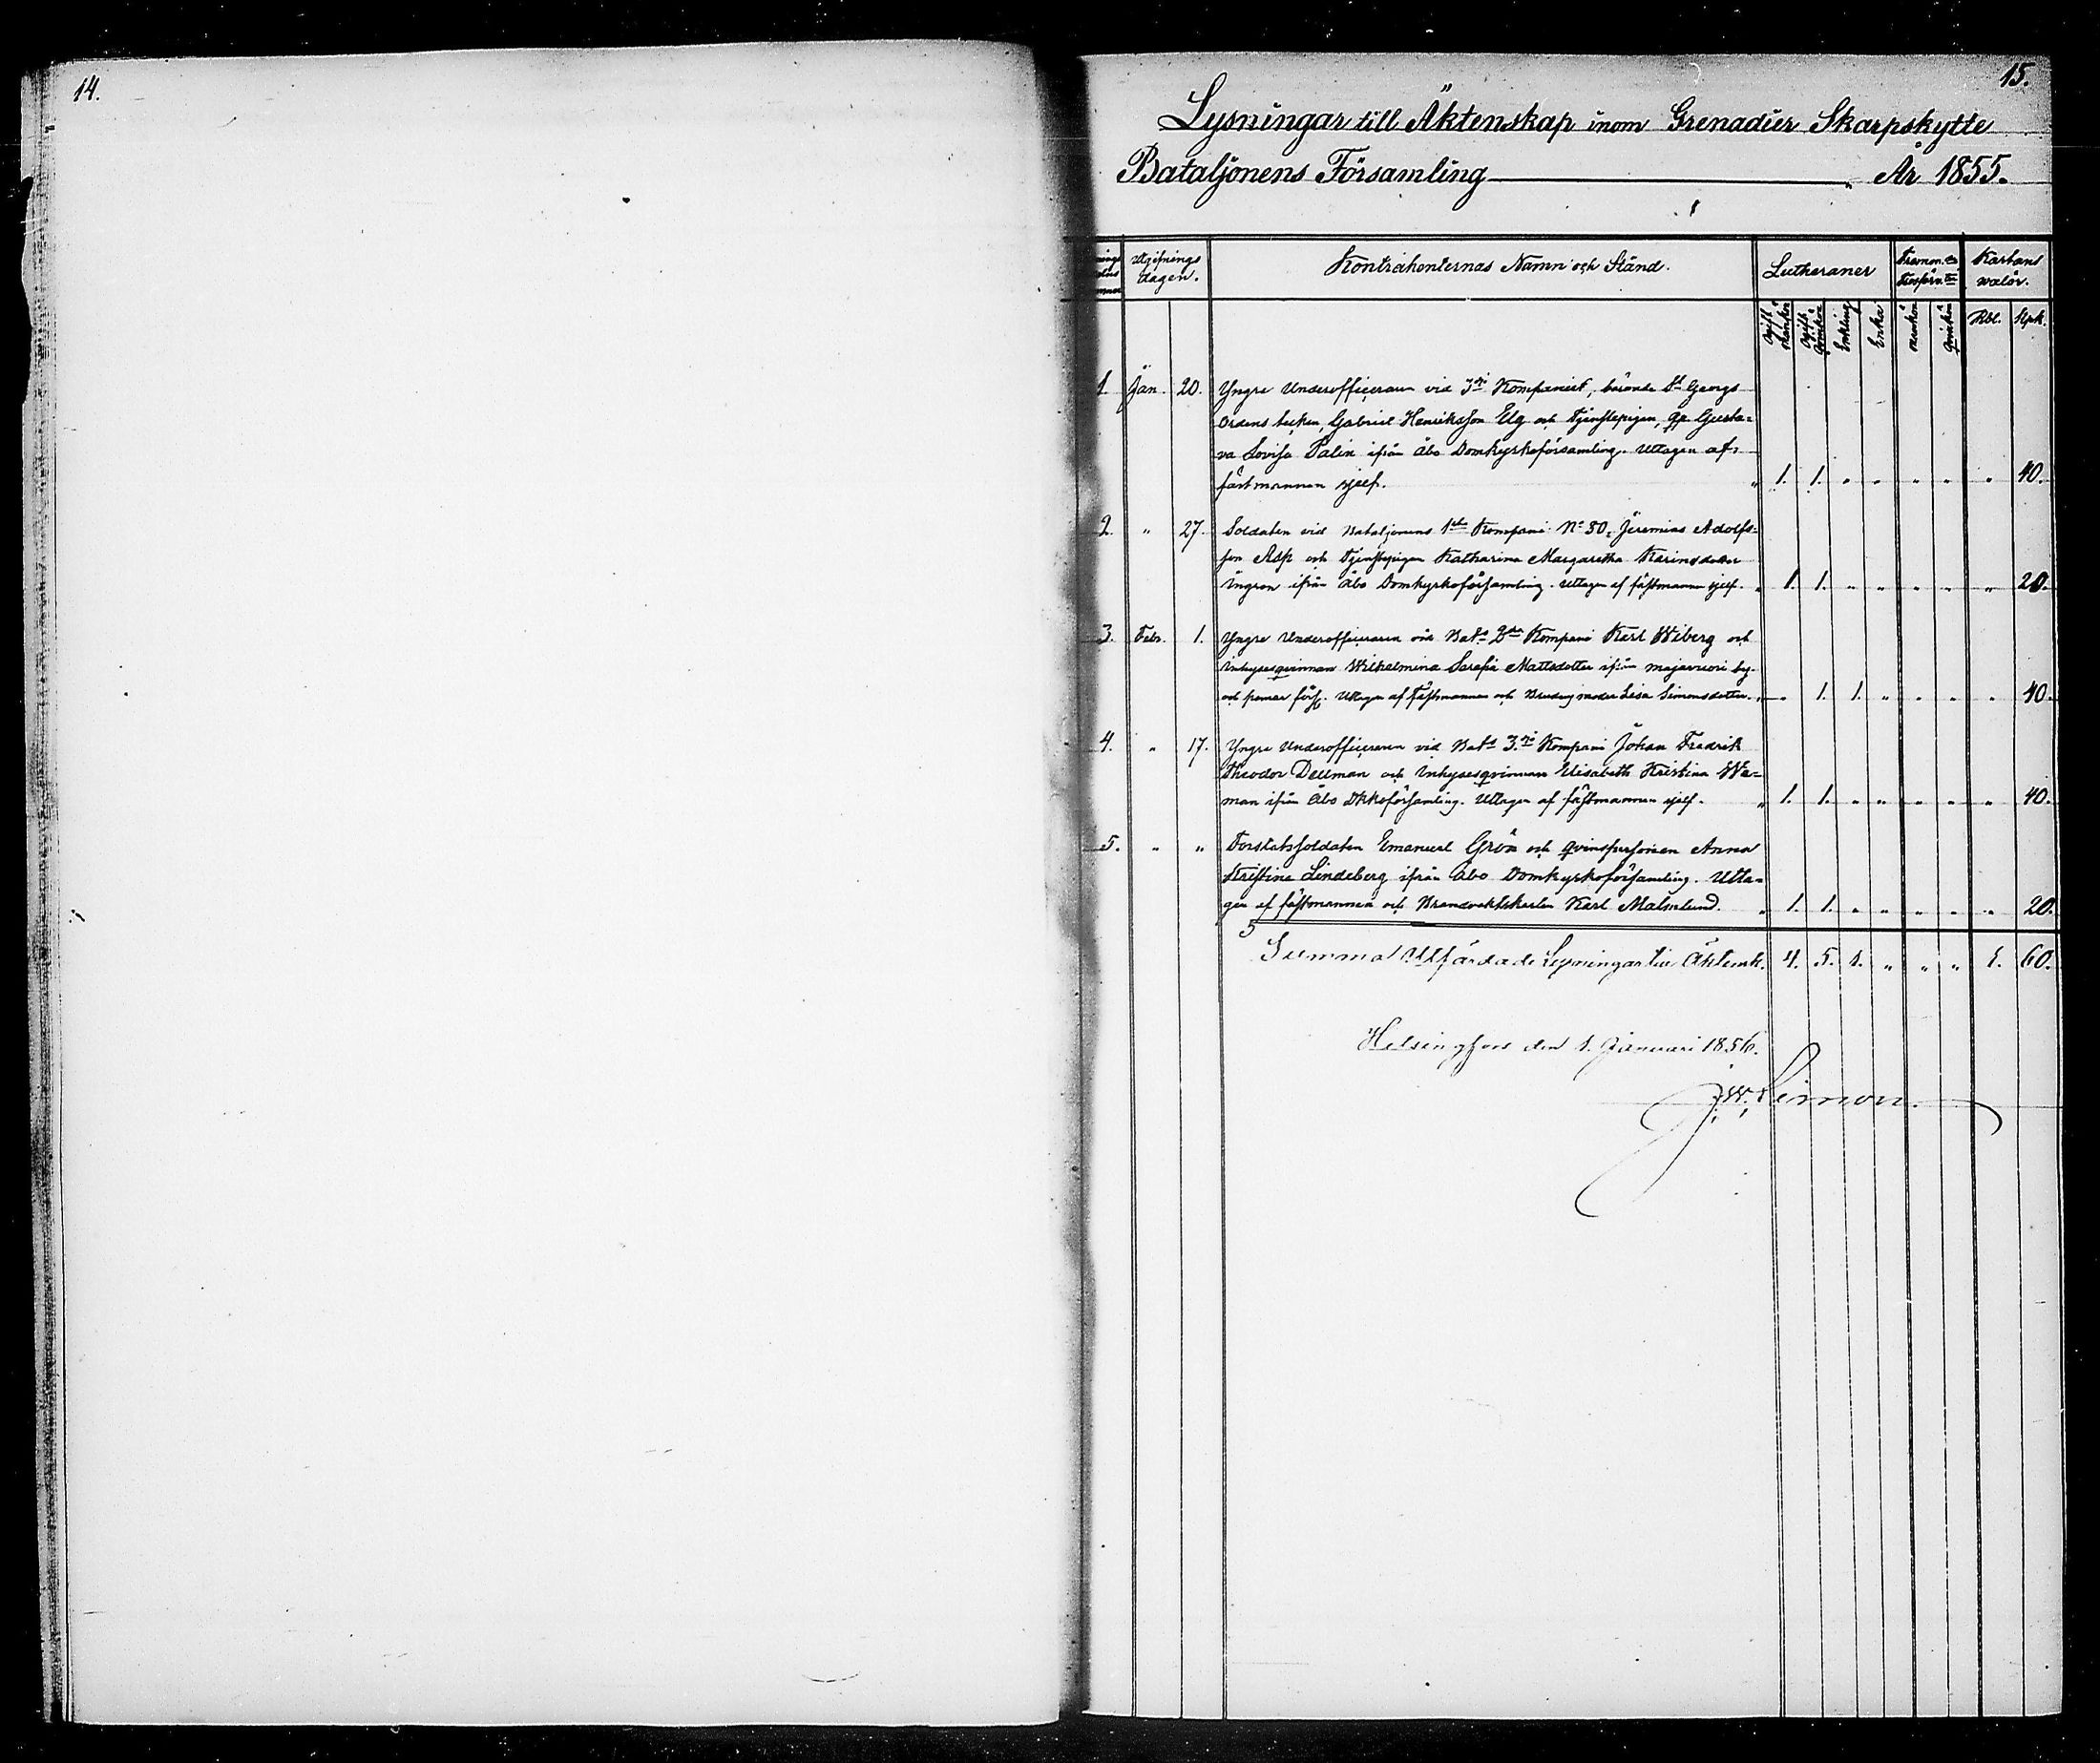 14.
15.
Lysningar till Äktenskap inom Grenadier Skarpskytte
Bataljonens Församling År 1855.
Utgifnings Kontrahenternas Namn och Stånd. Lutheraner Kartans
dagen. walör.
Ogift Ogift Enkling Enka mankön qvinkön Rbl. Kpk.
mankön qvinkön
1. Jan. 20. Yngre Underofficeraren vid 3dje Kompaniet, bärande St Georgs
Ordens tecken, Gabriel Henriksson Elg och Tjenstepigan, Gusta-
va Lovisa Palin ifrån Åbo Domkyrkoförsamling. Uttagen af
fästmannen sjelf. " 1. 1. " " " " " 40.
2. " 27. Soldaten vid Bataljonens 1sta Kompani No 80, Jeremias Adolfs-
son Asp och Tjenstepigan Katharina Margaretha Karinsdotter
Ingron ifrån Åbo Domkyrkoförsamling. Uttagen af fästmannen sjelf. " 1. 1. " " " " " 20.
3. Febr. 1. Yngre Underofficeraren vid Bats 2dra Kompani Karl Wiberg och
Inhysesqvinnan Wilhelmina Sarefia Mattsdotter ifrån majavuori by
och pemar förs. Uttagen af Fästmannen och Brudens moder Lisa Simonsdotter. " " 1. 1. " " " " 40.
4. " 17. Yngre Underofficeraren vid Bats 3dje Kompani Johan Fredrik
Theodor Dellman och Inhysesqvinnan Elisabeth Kristina We-
man ifrån Åbo Dkkoförsamling. Uttagen af fästmannen sjelf. " 1. 1. " " " " " 40.
5. " " Forstatssoldaten Emanuel Grön och qvinspersonen Anna
Kristina Lindeberg ifrån Åbo Domkyrkoförsamling. Utta-
gen af fästmannen och Brandvaktskarlen Karl Malmlund. " 1. 1. " " " " " 20.
5
Summa Utfärdade Lysningar till Äktensk. 4. 5. 1. " " " 1. 60.
Helsingfors den 1. Januari 1856.
J. W. Limon.